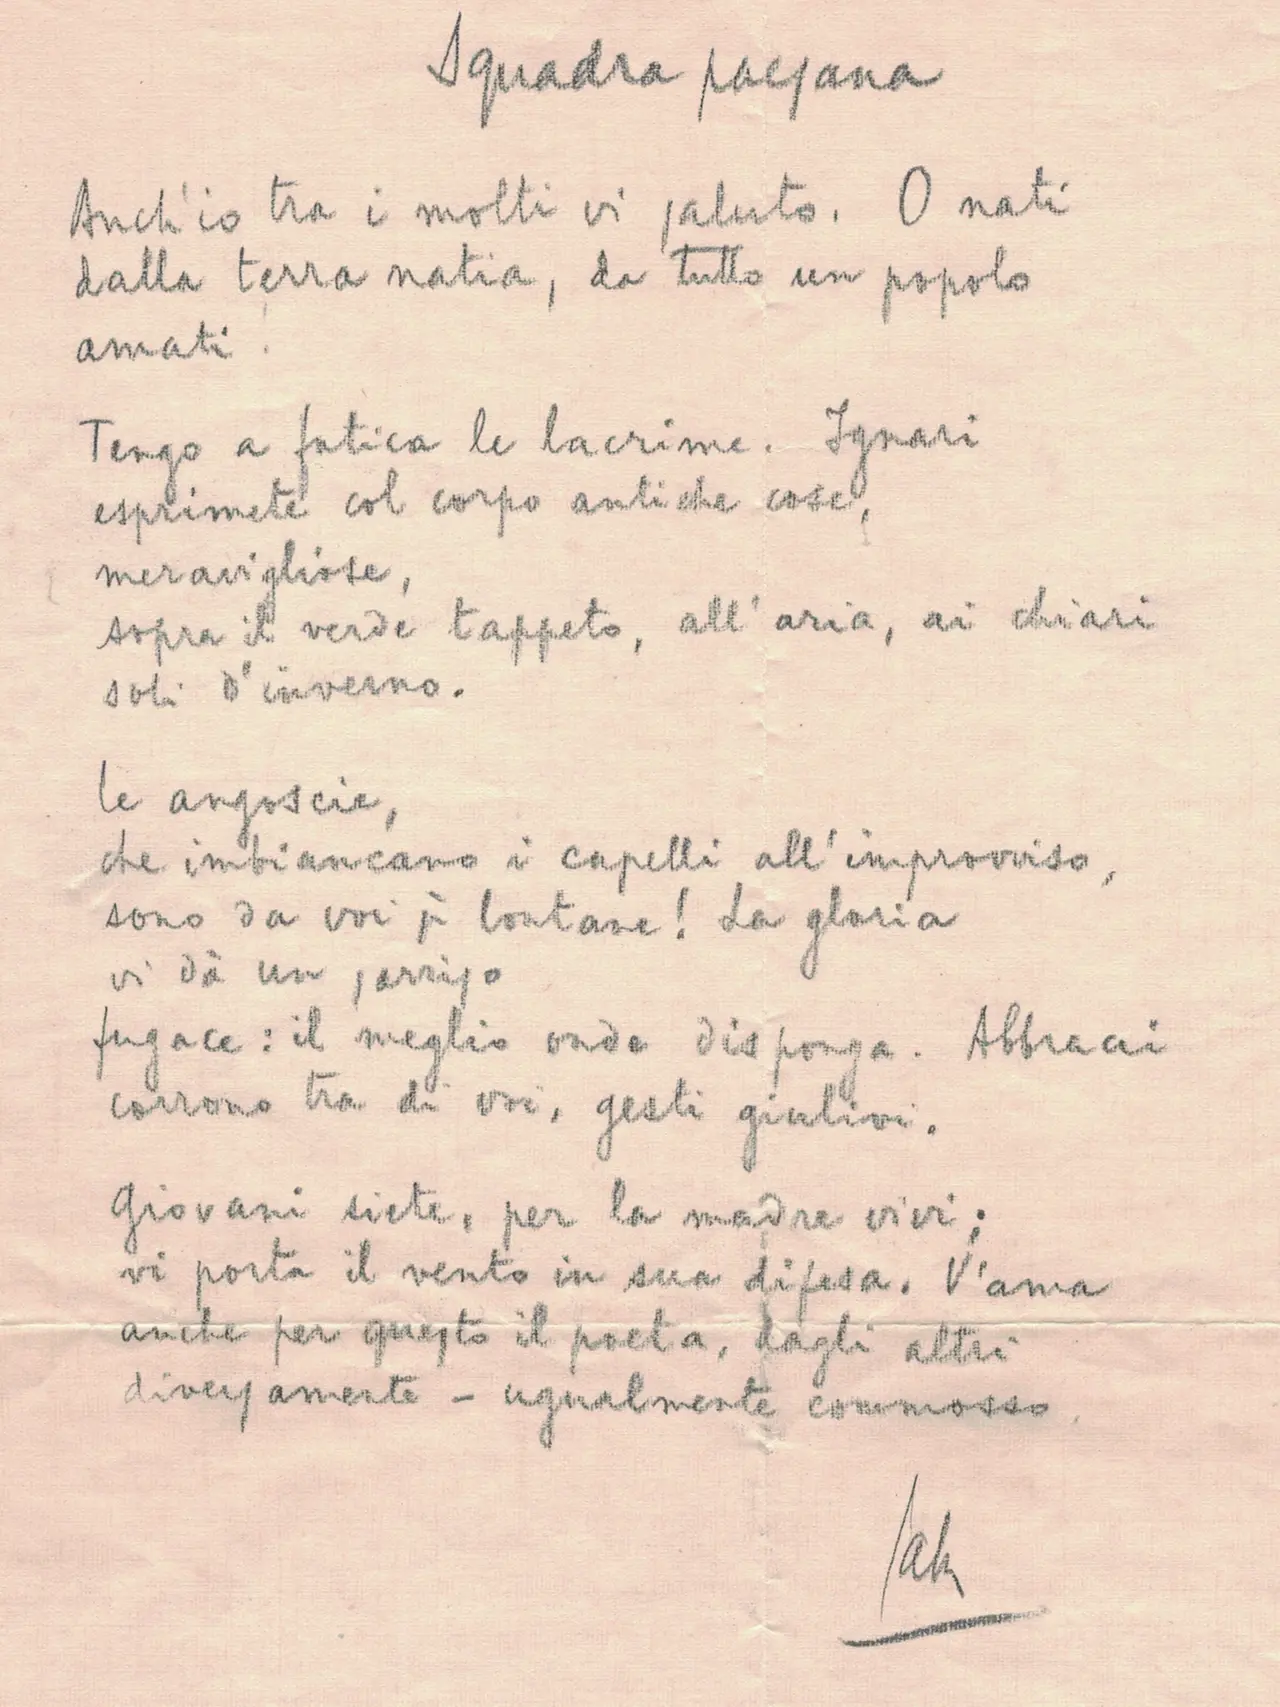 Squadra paesana
Anch'io tra i molti vi saluto. O nati
dalla terra natia, da tutto un popolo
amati.
Tengo a fatica le lacrime. Ignari
esprimete col corpo antiche cose,
meravigliose,
sopra il verde tappeto, all'aria, ai chiari
soli d'inverno.
le angoscie,
che imbiancano i capelli all'improvviso,
sono da voi sì lontane! La gloria
vi dà un sorriso
fugace: il meglio onde disponga. Abbracci
corrono tra di voi, gesti giulivi.
Giovani siete, per la madre vivi;
vi porta il vento in sua difesa. V'ama
anche per questo il poeta, dagli altri
diversamente - ugualmente commosso.